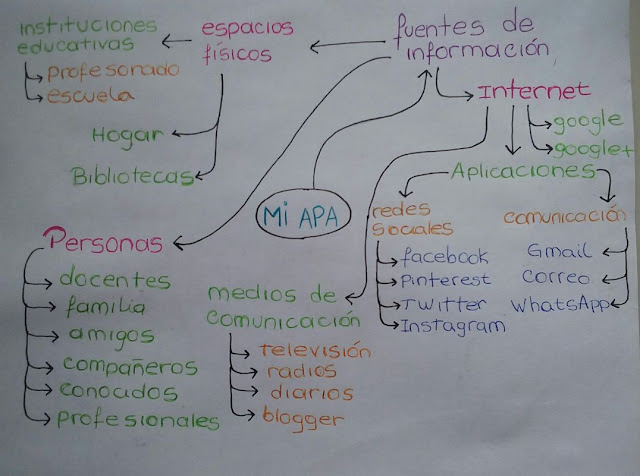 instituciones
educativas
profesorado
escuela
espacios
físicos
fuentes de
información
Hogar
Bibliotecas
Internet
google
google+
Aplicaciones
redes
sociales
facebook
Pinterest
Twitter
Instagram
comunicación
Gmail
correo
WhatsApp
Mi APA
Personas
docentes
familia
amigos
compañeros
conocidos
profesionales
medios de
comunicación
televisión
radios
diarios
blogger